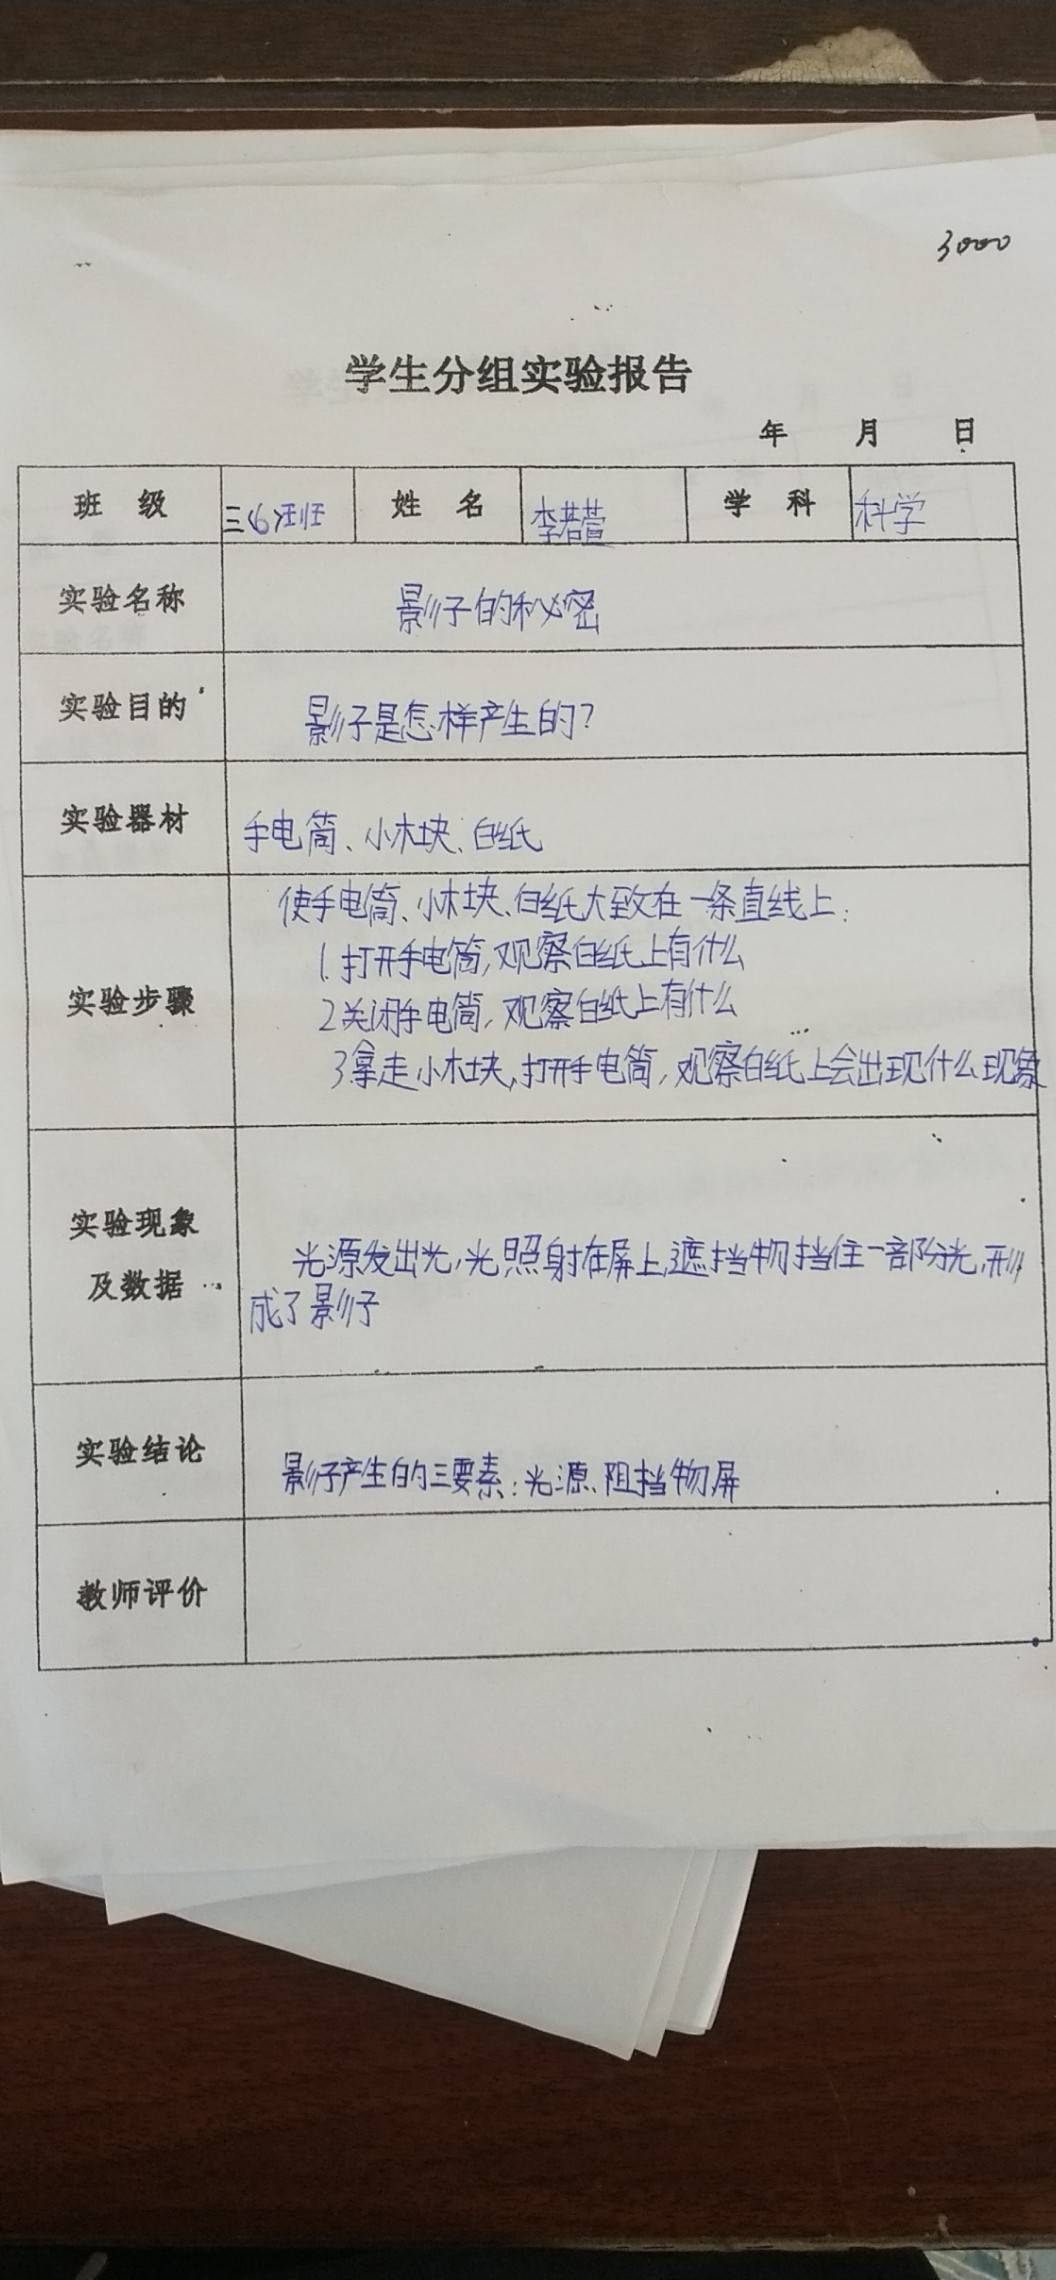 3000
学生分组实验报告
年 月 日
班 级 三(6)班 姓 名 李若萱 学 科 科学
实验名称 影子的秘密
实验目的 影子是怎样产生的?
实验器材 手电筒、小木块、白纸
使手电筒、小木块、白纸大致在一条直线上:
1.打开手电筒,观察白纸上有什么
实验步骤 2关闭手电筒,观察白纸上有什么
3.拿走小木块,打开手电筒,观察白纸上会出现什么现象
实验现象
及数据 光源发出光,光照射在屏上,遮挡物挡住一部分光,形
成了影子
实验结论 影子产生的三要素:光源、阻挡物屏
教师评价